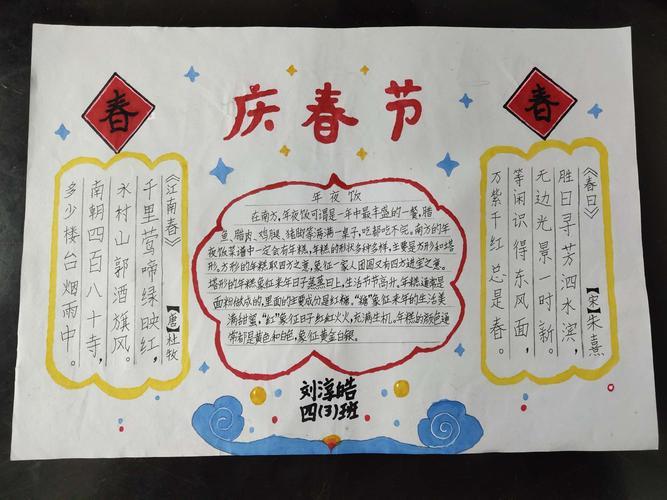 庆春节
春
春
《江南春》
【唐】杜牧
千里莺啼绿映红,
水村山郭酒旗风。
南朝四百八十寺,
多少楼台烟雨中。
年夜饭
在南方,年夜饭可谓是一年中最丰盛的一餐,腊
鱼、腊肉、鸡腿、猪脚等海满一桌子,吃都吃不完。南方的年
夜饭菜谱中一定会有年糕,年糕的形状多种多样,主要是方形和塔
形。方形的年糕取四方之意,象征一家人团圆又有四方进宝之意。
塔形的年糕象征来年日子蒸蒸日上,生活节节高升。年糕通常是
面粉做成的,里面的主要成分是红糖,“糖”象征来年的生活美
满甜蜜,“红”象征日子红红火火,充满生机。年糕的颜色通
常都是黄色和白色,象征黄金白银。
《春日》
【宋】朱熹
胜日寻芳泗水滨,
无边光景一时新。
等闲识得东风面,
万紫千红总是春。
刘淳皓
四(3)班